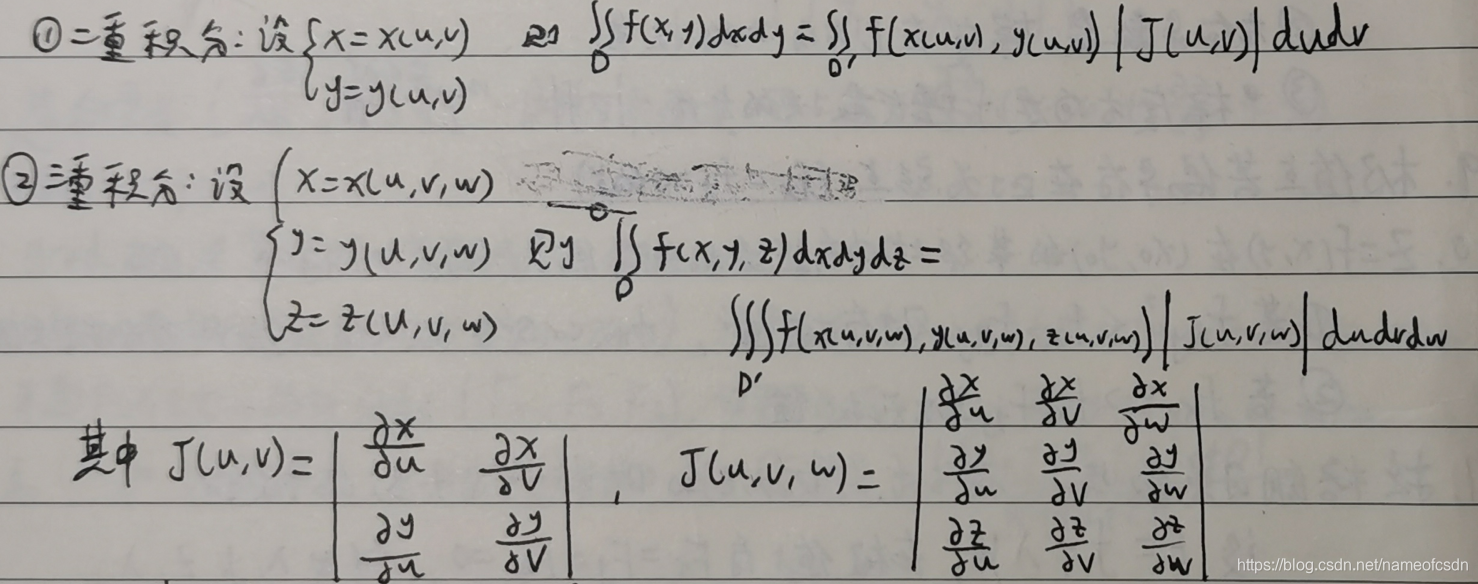 ①二重积分:设{x=x(u,v) 则 ∬_D f(x,y)dxdy=∬_D' f(x(u,v),y(u,v))|J(u,v)|dudv
y=y(u,v)
②三重积分:设{x=x(u,v,w)
y=y(u,v,w) 则 ∬_D f(x,y,z)dxdydz=
z=z(u,v,w) ∭_D' f(x(u,v,w),y(u,v,w),z(u,v,w))|J(u,v,w)|dudvdw
其中 J(u,v)=|∂x/∂u ∂x/∂v; ∂y/∂u ∂y/∂v|, J(u,v,w)=|∂x/∂u ∂x/∂v ∂x/∂w; ∂y/∂u ∂y/∂v ∂y/∂w; ∂z/∂u ∂z/∂v ∂z/∂w|
https://blog.csdn.net/nameofcsdn